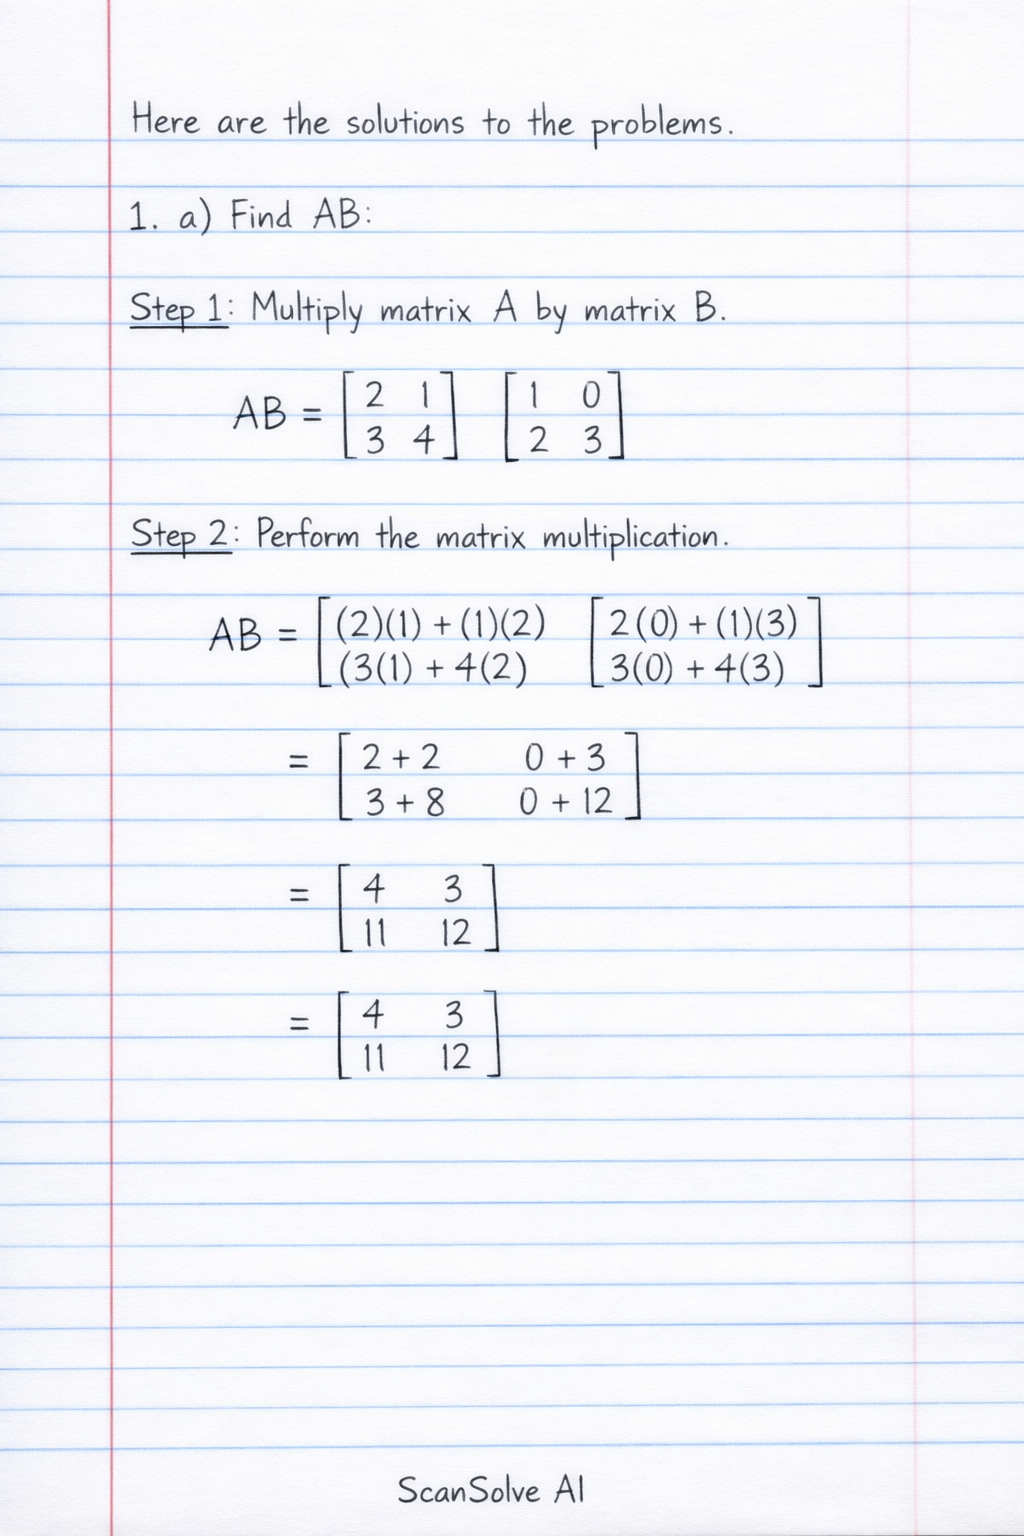 Here are the solutions to the problems.
1. a) Find AB:
Step 1: Multiply matrix A by matrix B.
AB = [2 1] [1 0]
[3 4] [2 3]
Step 2: Perform the matrix multiplication.
AB = [(2)(1) + (1)(2) [2(0) + (1)(3)]
[(3(1) + 4(2) [3(0) + 4(3)]
= [2 + 2 0 + 3]
[3 + 8 0 + 12]
= [4 3]
[11 12]
= [4 3]
[11 12]
ScanSolve AI